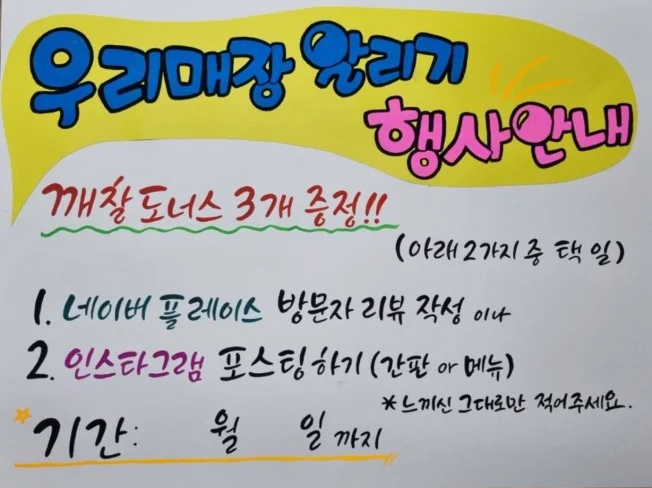 우리매장 알리기
행사안내
깨찰도너스 3개 증정!!
(아래 2가지 중 택 일)
1. 네이버 플레이스 방문자 리뷰 작성 이나
2. 인스타그램 포스팅하기 (간판 or 메뉴)
* 느끼신 그대로만 적어주세요.
기간: 월 일 까지